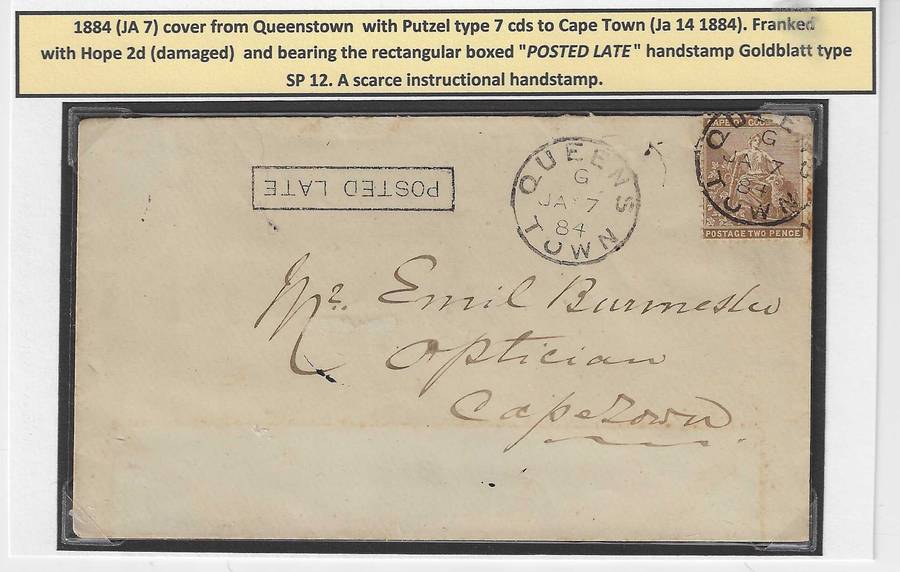 1884 (JA 7) cover from Queenstown with Putzel type 7 cds to Cape Town (Ja 14 1884). Franked
with Hope 2d (damaged) and bearing the rectangular boxed "POSTED LATE" handstamp Goldblatt type
SP 12. A scarce instructional handstamp.
POSTED LATE
QUEENS
G
JA 7
84
TOWN
CAPE OF GOOD
QUEENS
G
JA 7
84
TOWN
POSTAGE TWO PENCE
Mr. Emil Burmester
Optician
Capetown